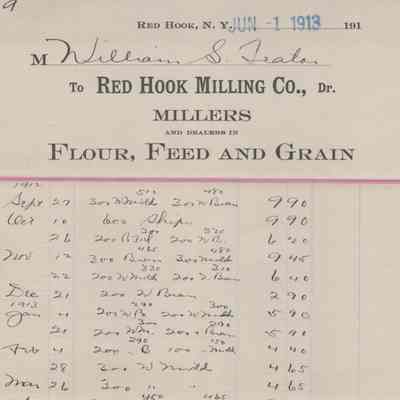 9
RED HOOK, N. Y. JUN -1 1913 191
M William S. Teator
To RED HOOK MILLING CO., Dr.
MILLERS
AND DEALERS IN
FLOUR, FEED AND GRAIN
1912
510 480
Sept 27 300 W Midd 300 W Bran 9 90
Oct 10 600 Ships 9 90
300 320
26 200 200 W B. 6 20
465 480
Nov 12 300 Bran 300 Midd 9 45
320 320
22 200 W Midd 200 W Bran 6 40
Dec 21 200 W Bran 2 90
1913 290 300
Jan 4 200 W B. 200 W Midd 5 90
300 290
21 200 WM. 200 Bran 5 90
290 150
Feb 4 200 B 100 Midd 4 40
28 300 W Midd 4 65
Mar 26 300 " " 4 65
450 465